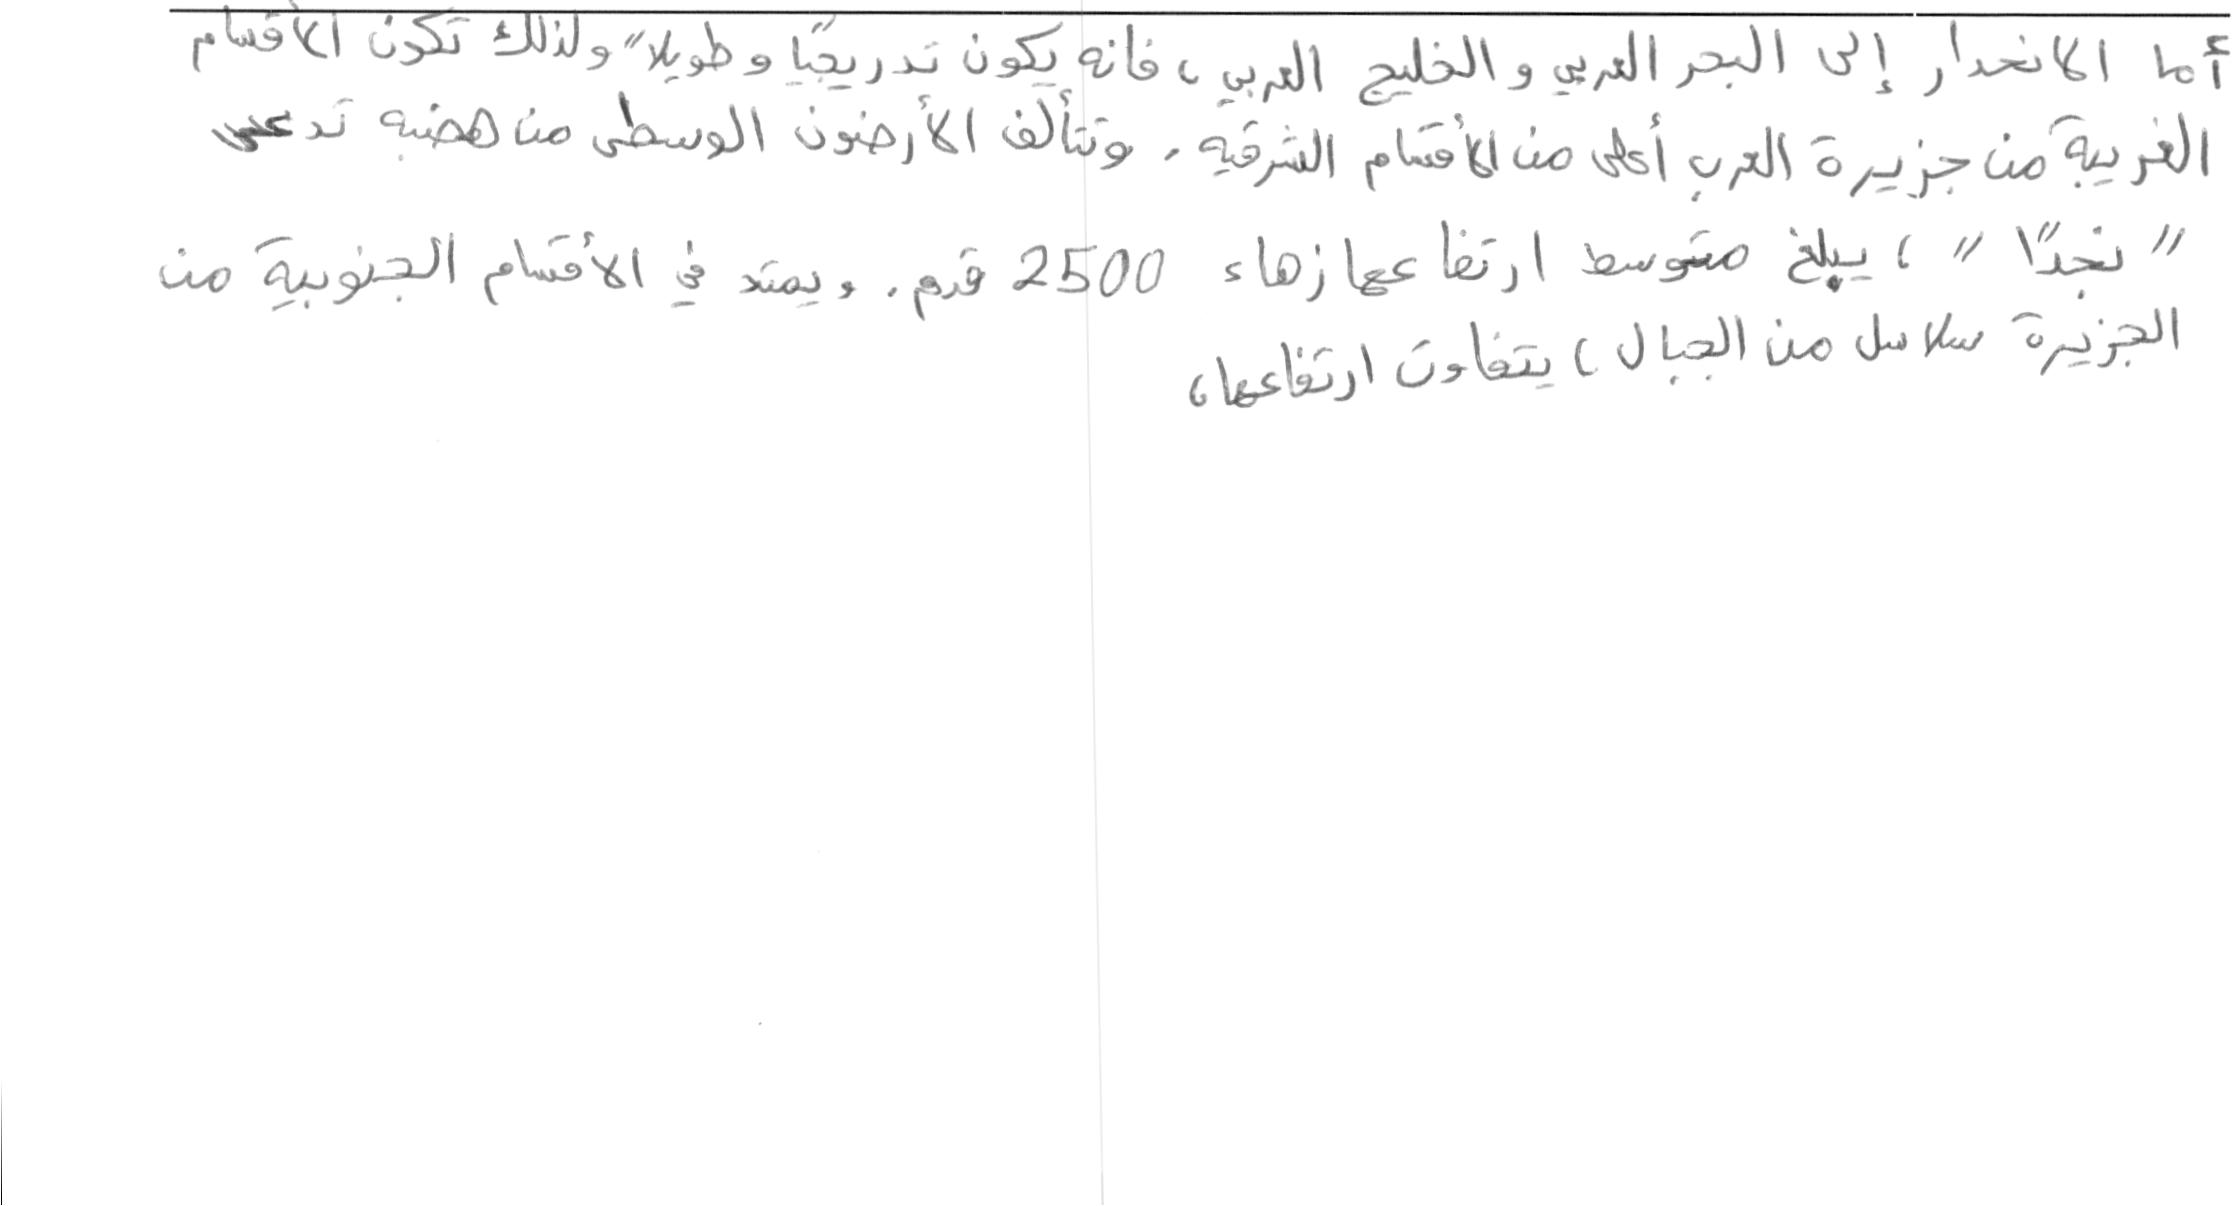 أما الانحدار إلى البحر العربي والخليج العربي، فانه يكون تدريجيًا وطويلاً ولذلك تكون الأقسام
الغربية من جزيرة العرب أعلى من الأقسام الشرقيه. وتتألف الأرضون الوسطى من هضبه تدعى
"نجدًا"، يبلغ متوسط ارتفاعها زهاء 2500 قدم. ويمتد في الأقسام الجنوبية من
الجزيرة سلاسل من الجبال، يتفاوت ارتفاعها،